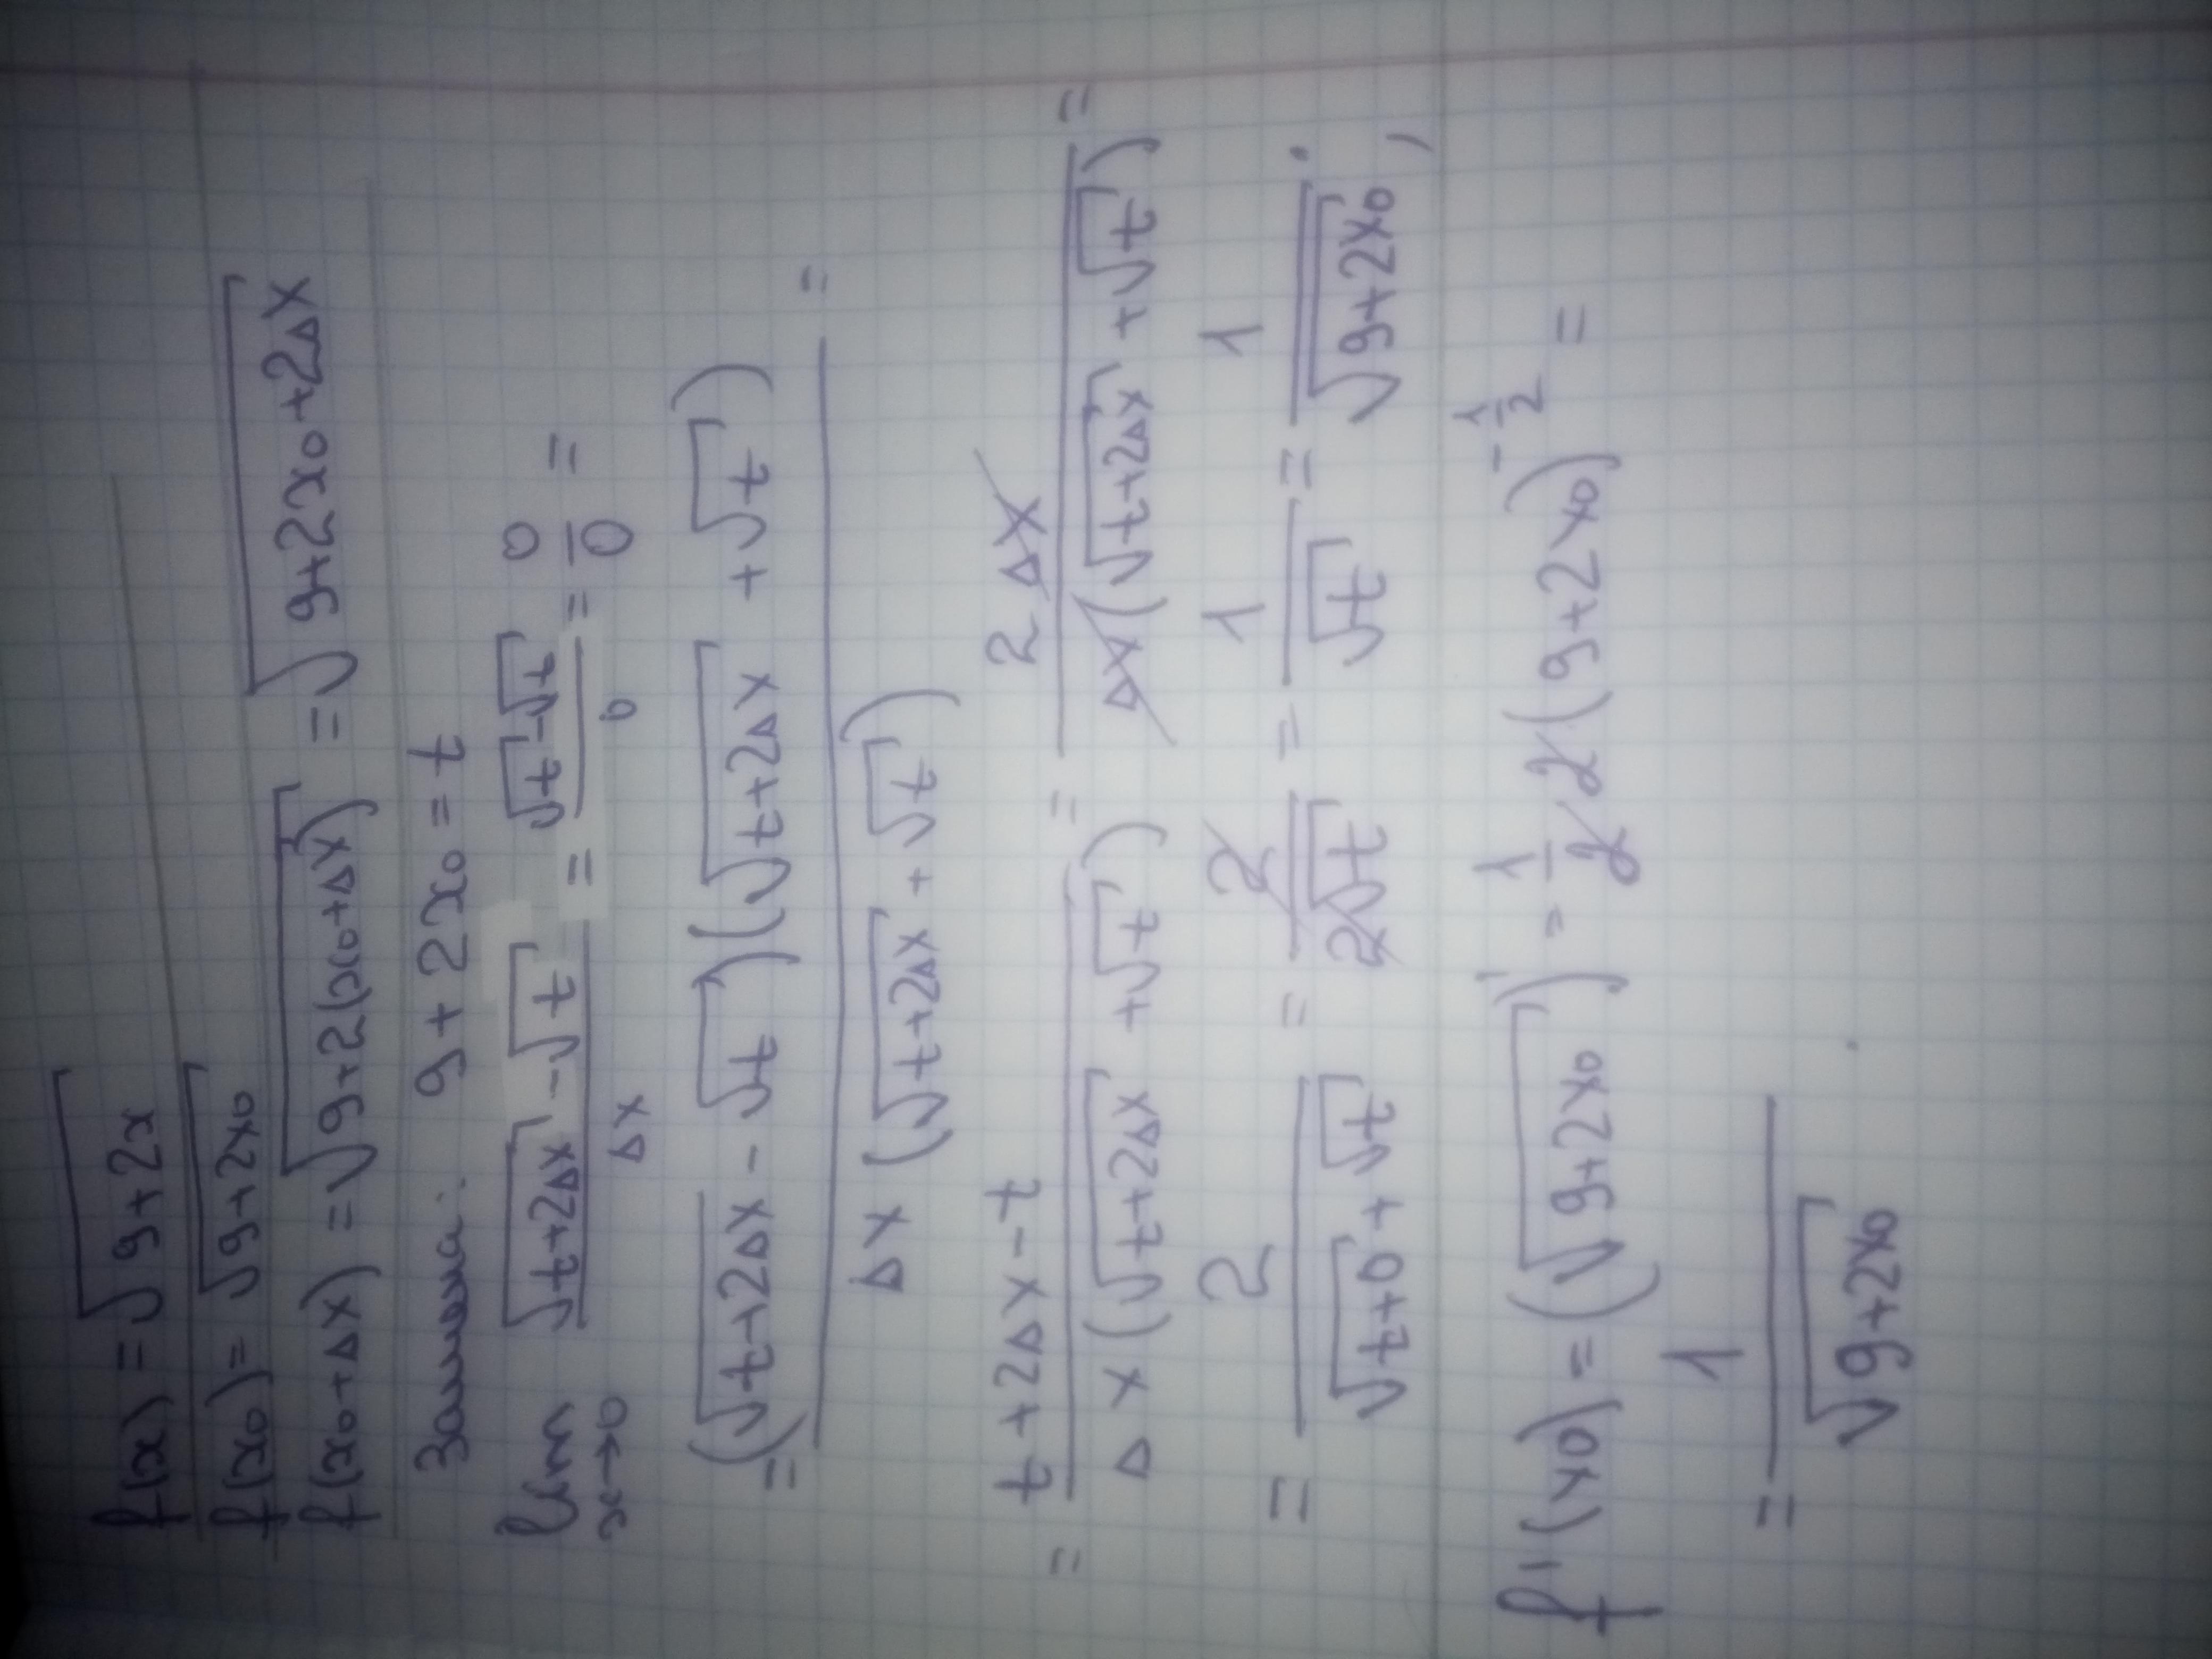 f(x) = √(9+2x)
f(x₀) = √(9+2x₀)
f(x₀+Δx) = √(9+2(x₀+Δx)) = √(9+2x₀+2Δx)
Замена: 9+2x₀ = t
lim x→0 (√(t+2Δx) - √t)/Δx = (√t - √t)/0 = 0/0 =
= ((√(t+2Δx) - √t)(√(t+2Δx) + √t))/(Δx(√(t+2Δx) + √t)) =
= (t+2Δx-t)/(Δx(√(t+2Δx) + √t)) = 2Δx/(Δx(√(t+2Δx) + √t)) =
= 2/(√(t+0) + √t) = 2/(2√t) = 1/√t = 1/√(9+2x₀);
f'(x₀) = (√(9+2x₀))' = 1/2 · 2(9+2x₀)^(-1/2) =
= 1/√(9+2x₀).